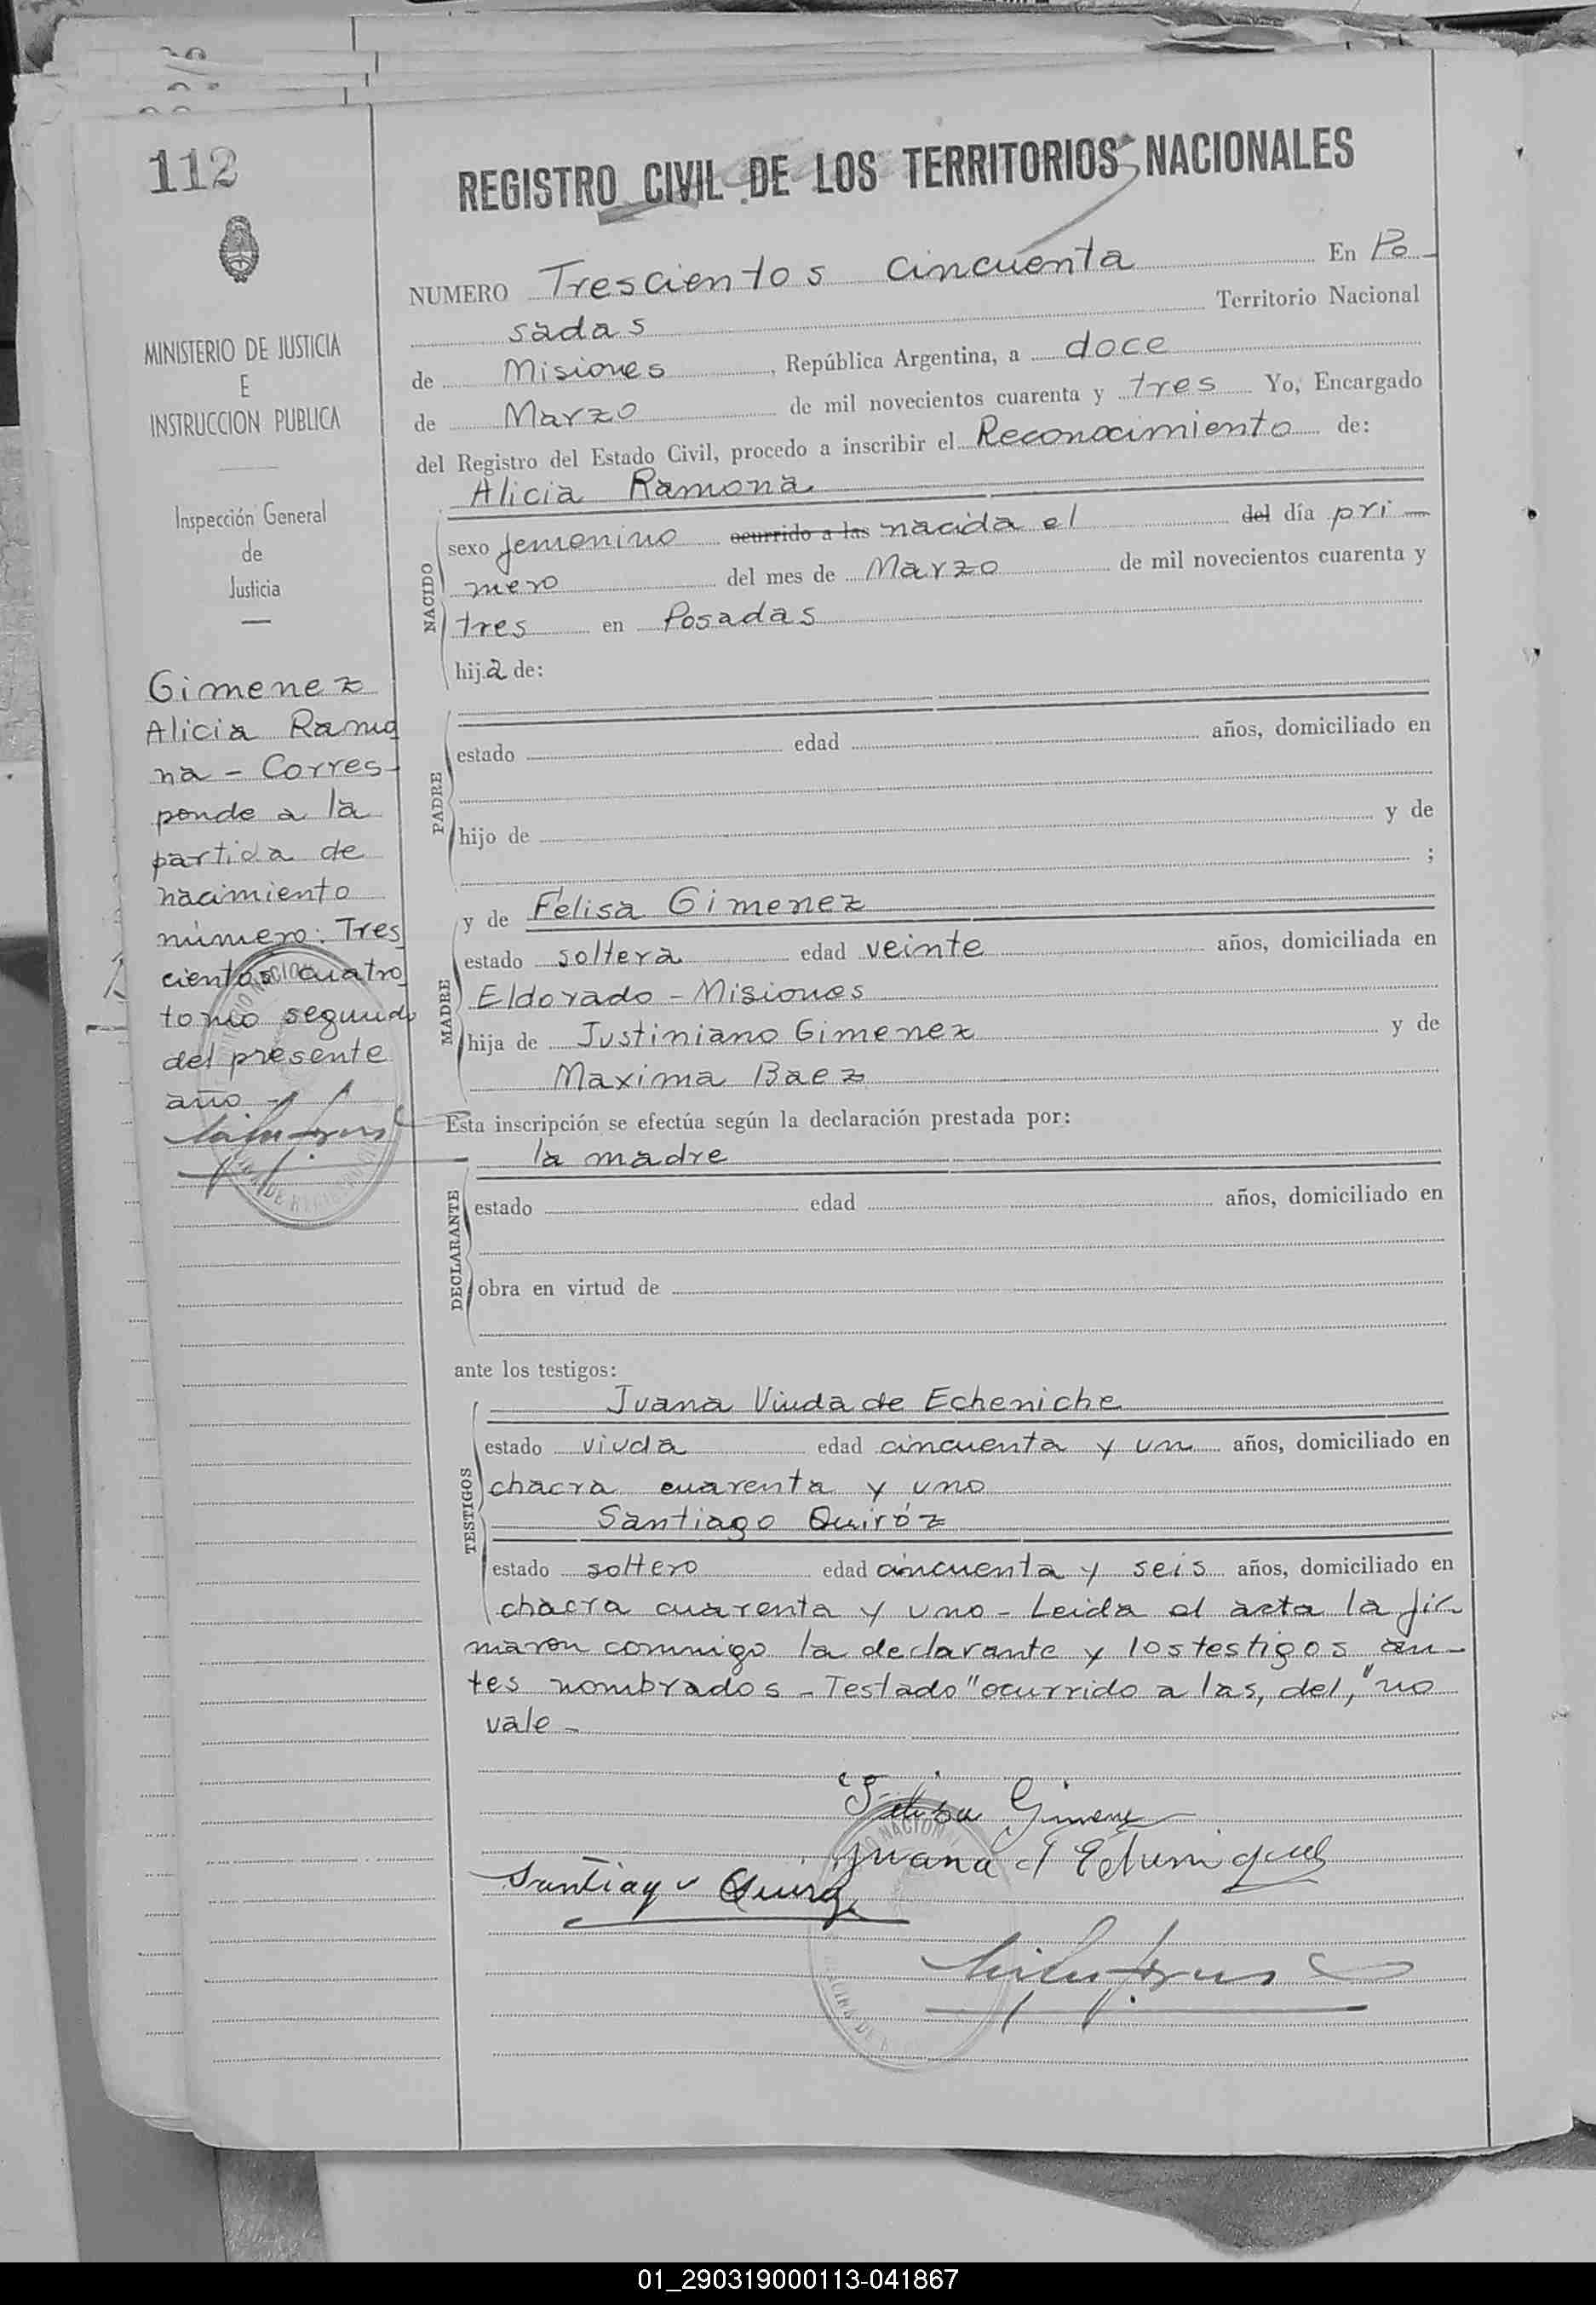 112
REGISTRO CIVIL DE LOS TERRITORIOS NACIONALES
NUMERO Trescientos cincuenta En Po-
sadas Territorio Nacional
de Misiones, República Argentina, a doce
de Marzo de mil novecientos cuarenta y tres Yo, Encargado
del Registro del Estado Civil, procedo a inscribir el Reconocimiento de:
Alicia Ramona
NACIDO
sexo femenino ocurrido a las nacida el del día pri-
mero del mes de Marzo de mil novecientos cuarenta y
tres en Posadas
hija de:
PADRE
estado edad años, domiciliado en
hijo de y de
;
MADRE
y de Felisa Gimenez
estado soltera edad veinte años, domiciliada en
Eldorado - Misiones
hija de Justiniano Gimenez y de
Maxima Baez
Esta inscripción se efectúa según la declaración prestada por:
la madre
DECLARANTE
estado edad años, domiciliado en
obra en virtud de
ante los testigos:
TESTIGOS
Juana Viuda de Echeniche
estado viuda edad cincuenta y un años, domiciliado en
chacra cuarenta y uno
Santiago Quiróz
estado soltero edad cincuenta y seis años, domiciliado en
chacra cuarenta y uno - Leida el acta la fir
maron conmigo la declarante y los testigos an-
tes nombrados - Testado "ocurrido a las, del," no
vale -
Felisa Gimenez
Juana
Santiago Quiroz
MINISTERIO DE JUSTICIA
E
INSTRUCCION PUBLICA
Inspección General
de
Justicia
Gimenez
Alicia Ramo
na - Corres-
ponde a la
partida de
nacimiento
número: Tres
cientos cuatro
tomo segundo
del presente
año -
01_290319000113-041867